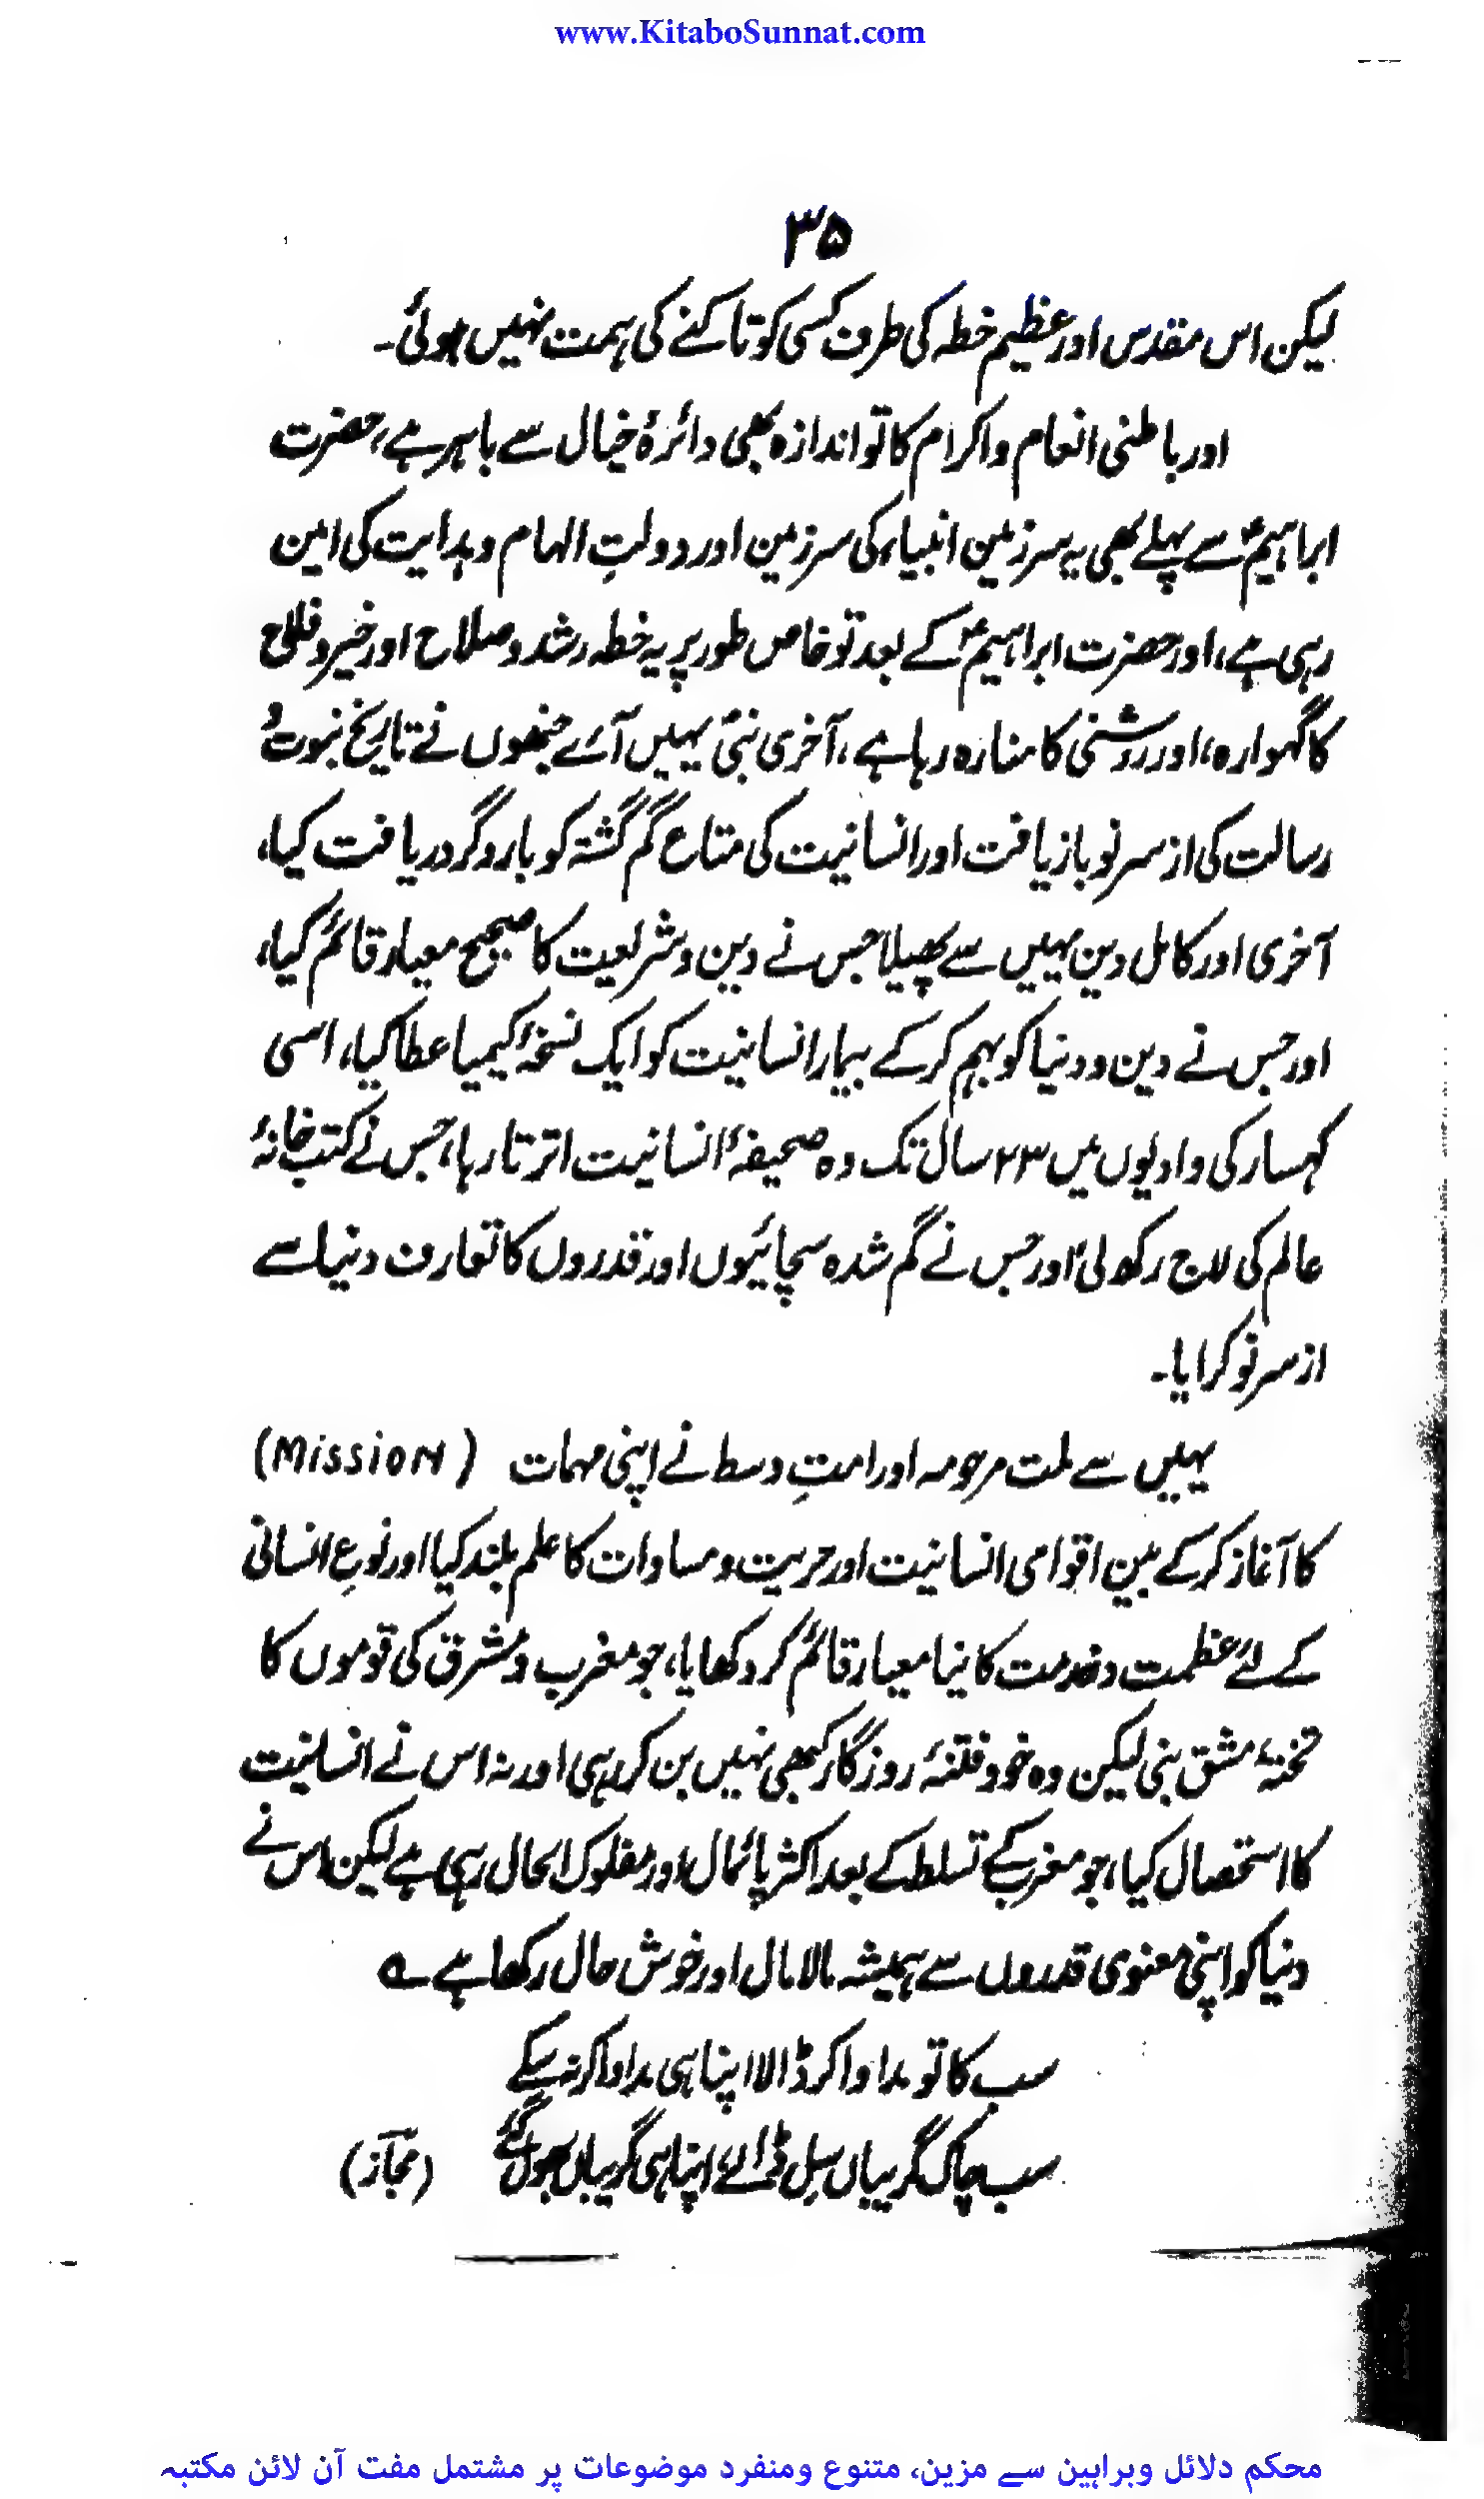 www.KitaboSunnat.com
۳۵
لیکن اس مقدس اور عظیم خطہ کی طرف کسی کو تاکنے کی ہمت نہیں ہوئی۔
اور باطنی انعام و اکرام کا تو اندازہ بھی دائرۂ خیال سے باہر ہے، حضرت
ابراہیمؑ سے پہلے بھی یہ سرزمین انبیاء کی سرزمین اور دولتِ الہام و ہدایت کی امین
رہی ہے، اور حضرت ابراہیمؑ کے بعد تو خاص طور پر یہ خطہ رشد و صلاح اور خیر و فلاح
کا گہوارہ، اور روشنی کا منارہ رہا ہے، آخری نبیؐ یہیں آئے جنھوں نے تاریخ نبوت و
رسالت کی از سر نو بازیافت اور انسانیت کی متاع گم گشتہ کو بار دگر دریافت کیا،
آخری اور کامل دین یہیں سے پھیلا جس نے دین و شریعت کا صحیح معیار قائم کیا،
اور جس نے دین و دنیا کو بہم کر کے بیمار انسانیت کو ایک نسخۂ کیمیا عطا کیا، اسی
کہسار کی وادیوں میں ۲۳ سال تک وہ صحیفۂ انسانیت اترتا رہا، جس نے کتب خانۂ
عالم کی لاج رکھ لی اور جس نے گم شدہ سچائیوں اور قدروں کا تعارف دنیا سے
از سر نو کرایا۔
یہیں سے ملت مرحومہ اور امتِ وسط نے اپنی مہمات (Mission)
کا آغاز کر کے بین اقوامی انسانیت اور حریت و مساوات کا علم بلند کیا اور نوعِ انسانی
کے لئے عظمت و خدمت کا نیا معیار قائم کر دکھایا، جو مغرب و مشرق کی قوموں کا
تختۂ مشق بنی لیکن وہ خود فتنۂ روزگار کبھی نہیں بن کر رہی اور نہ اس نے انسانیت
کا استحصال کیا، جو مغرب کے تسلط کے بعد اکثر پائمال اور مفلوک الحال رہی ہے لیکن اس نے
دنیا کو اپنی معنوی قدروں سے ہمیشہ مالا مال اور خوش حال رکھا ہے ؎
سب کا تو مداوا کر ڈالا اپنا ہی مداوا کر نہ سکے
سب چاک گریباں سِل ڈالے، اپنا ہی گریباں بھول گئے (مجاؔز)
محکم دلائل وبراہین سے مزین، متنوع ومنفرد موضوعات پر مشتمل مفت آن لائن مکتبہ